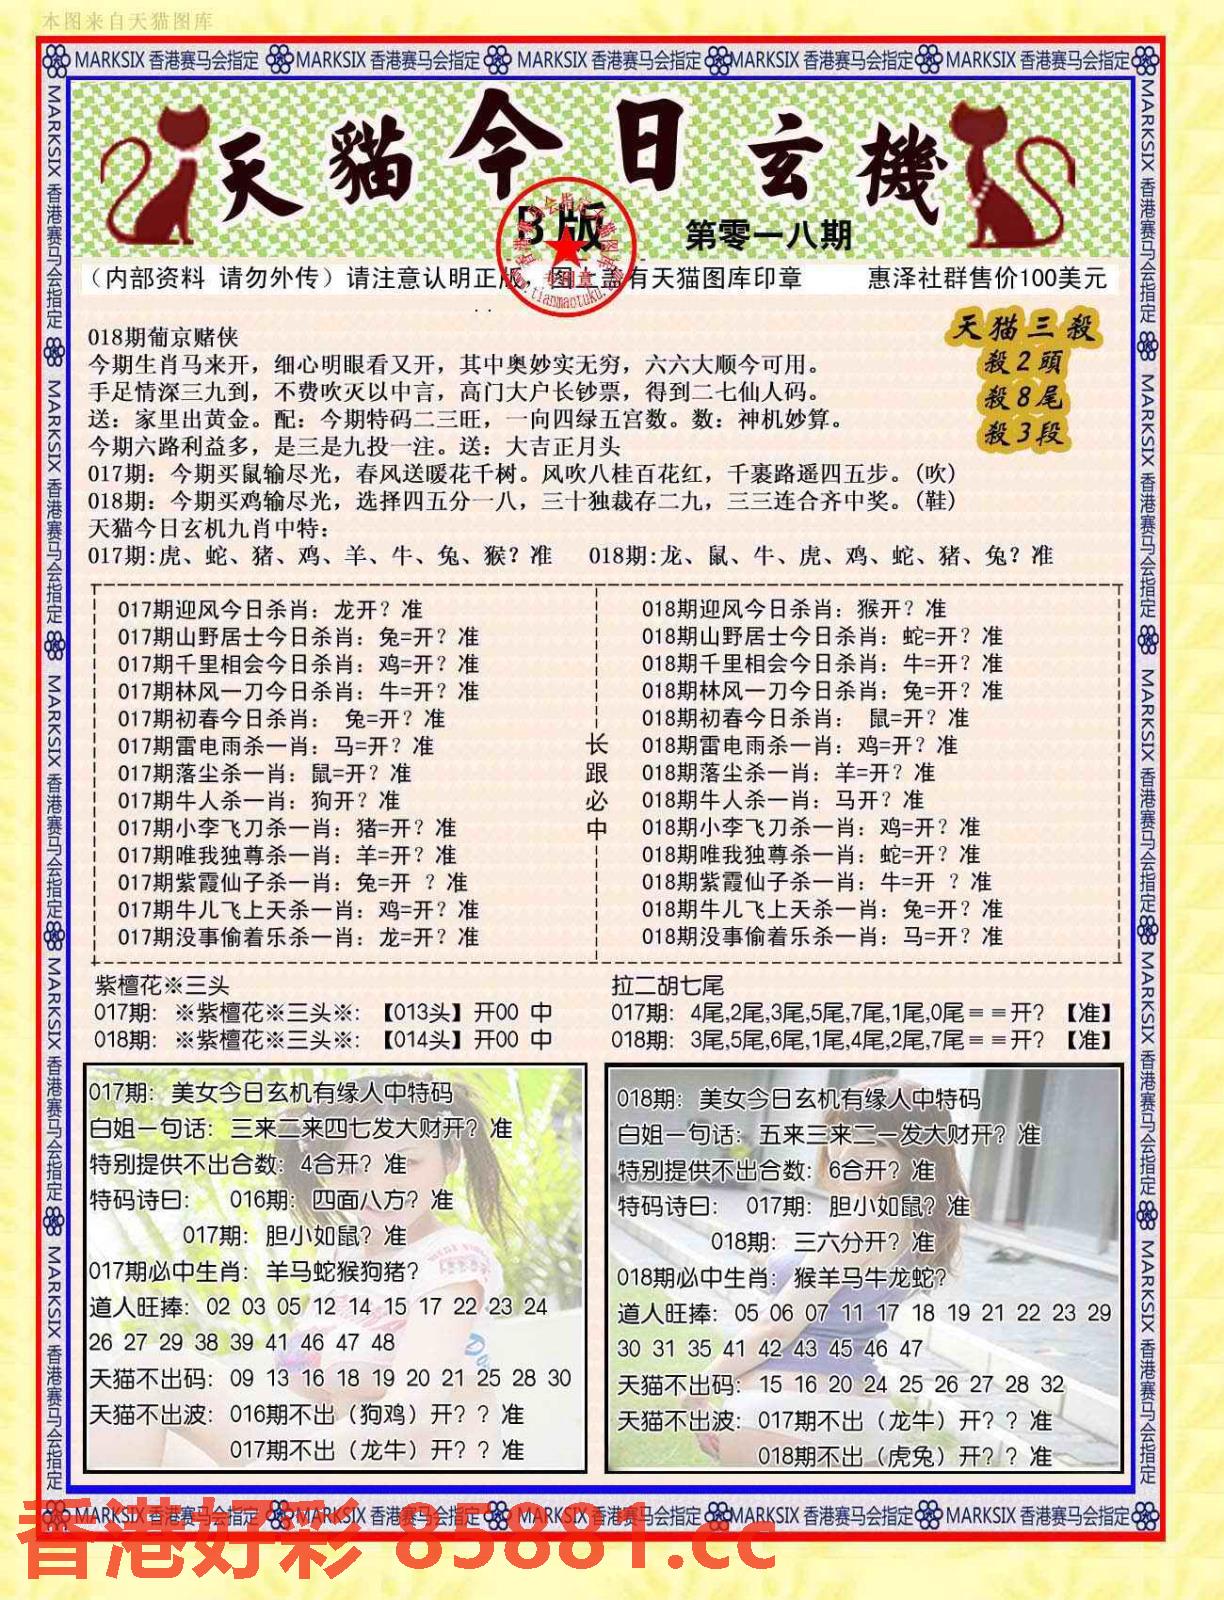 本图来自天猫图库
MARKSIX 香港赛马会指定 MARKSIX 香港赛马会指定 MARKSIX 香港赛马会指定 MARKSIX 香港赛马会指定 MARKSIX 香港赛马会指定
天貓今日玄機
B版 第零一八期
(内部资料 请勿外传)请注意认明正版 图上盖有天猫图库印章 惠泽社群售价100美元
天猫三殺
殺2頭
殺8尾
殺3段
018期葡京赌侠
今期生肖马来开，细心明眼看又开，其中奥妙实无穷，六六大顺今可用。
手足情深三九到，不费吹灭以中言，高门大户长钞票，得到二七仙人码。
送：家里出黄金。配：今期特码二三旺，一向四绿五宫数。数：神机妙算。
今期六路利益多，是三是九投一注。送：大吉正月头
017期：今期买鼠输尽光，春风送暖花千树。风吹八桂百花红，千裹路遥四五步。(吹)
018期：今期买鸡输尽光，选择四五分一八，三十独裁存二九，三三连合齐中奖。(鞋)
天猫今日玄机九肖中特：
017期:虎、蛇、猪、鸡、羊、牛、兔、猴？准 018期:龙、鼠、牛、虎、鸡、蛇、猪、兔？准
017期迎风今日杀肖：龙开？准
017期山野居士今日杀肖：兔=开？准
017期千里相会今日杀肖：鸡=开？准
017期林风一刀今日杀肖：牛=开？准
017期初春今日杀肖： 兔=开？准
017期雷电雨杀一肖：马=开？准
017期落尘杀一肖：鼠=开？准
017期牛人杀一肖：狗开？准
017期小李飞刀杀一肖：猪=开？准
017期唯我独尊杀一肖：羊=开？准
017期紫霞仙子杀一肖：兔=开 ？准
017期牛儿飞上天杀一肖：鸡=开？准
017期没事偷着乐杀一肖：龙=开？准
长跟必中
018期迎风今日杀肖：猴开？准
018期山野居士今日杀肖：蛇=开？准
018期千里相会今日杀肖：牛=开？准
018期林风一刀今日杀肖：兔=开？准
018期初春今日杀肖： 鼠=开？准
018期雷电雨杀一肖：鸡=开？准
018期落尘杀一肖：羊=开？准
018期牛人杀一肖：马开？准
018期小李飞刀杀一肖：鸡=开？准
018期唯我独尊杀一肖：蛇=开？准
018期紫霞仙子杀一肖：牛=开 ？准
018期牛儿飞上天杀一肖：兔=开？准
018期没事偷着乐杀一肖：马=开？准
紫檀花※三头
017期: ※紫檀花※三头※: 【013头】开00 中
018期: ※紫檀花※三头※: 【014头】开00 中
拉二胡七尾
017期: 4尾,2尾,3尾,5尾,7尾,1尾,0尾＝＝开? 【准】
018期: 3尾,5尾,6尾,1尾,4尾,2尾,7尾＝＝开? 【准】
017期: 美女今日玄机有缘人中特码
白姐一句话: 三来二来四七发大财开？准
特别提供不出合数: 4合开？准
特码诗曰: 016期: 四面八方？准
017期: 胆小如鼠？准
017期必中生肖: 羊马蛇猴狗猪?
道人旺捧: 02 03 05 12 14 15 17 22 23 24
26 27 29 38 39 41 46 47 48
天猫不出码: 09 13 16 18 19 20 21 25 28 30
天猫不出波: 016期不出（狗鸡）开？？准
017期不出（龙牛）开？？准
018期: 美女今日玄机有缘人中特码
白姐一句话: 五来三来二一发大财开？准
特别提供不出合数: 6合开？准
特码诗曰: 017期: 胆小如鼠？准
018期: 三六分开？准
018期必中生肖: 猴羊马牛龙蛇?
道人旺捧: 05 06 07 11 17 18 19 21 22 23 29
30 31 35 41 42 43 45 46 47
天猫不出码: 15 16 20 24 25 26 27 28 32
天猫不出波: 017期不出（龙牛）开？？准
018期不出（虎兔）开？？准
MARKSIX 香港赛马会指定 MARKSIX 香港赛马会指定 MARKSIX 香港赛马会指定 MARKSIX 香港赛马会指定 MARKSIX 香港赛马会指定
香港好彩 85881.cc
MARKSIX 香港赛马会指定 MARKSIX 香港赛马会指定 MARKSIX 香港赛马会指定 MARKSIX 香港赛马会指定 MARKSIX 香港赛马会指定
MARKSIX 香港赛马会指定 MARKSIX 香港赛马会指定 MARKSIX 香港赛马会指定 MARKSIX 香港赛马会指定 MARKSIX 香港赛马会指定